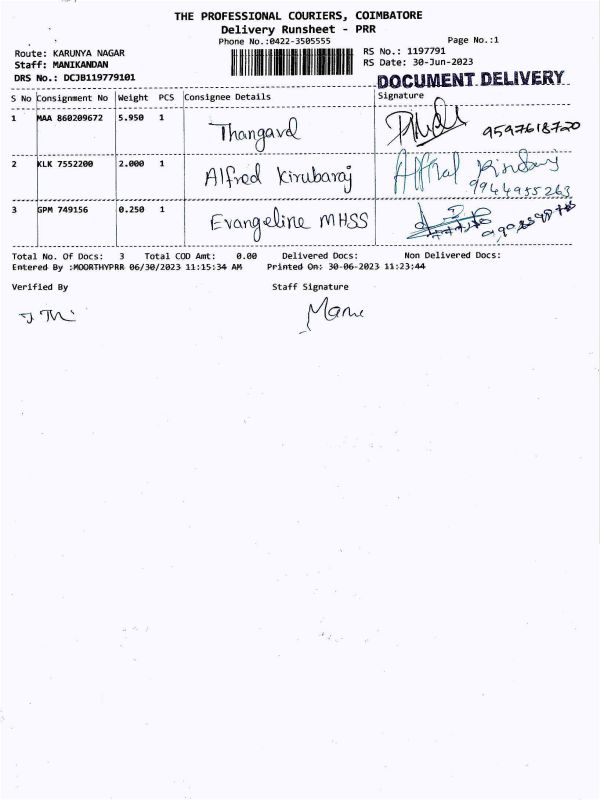 THE PROFESSIONAL COURIERS, COIMBATORE
Delivery Runsheet - PRR
Phone No.:0422-3505555 Page No.:1
Route: KARUNYA NAGAR RS No.: 1197791
Staff: MANIKANDAN RS Date: 30-Jun-2023
DRS No.: DCJB119779101 DOCUMENT DELIVERY
S No Consignment No Weight PCS Consignee Details Signature
1 MAA 860209672 5.950 1 Thangavel 9597618720
2 KLK 7552200 2.000 1 Alfred Kirubaraj 9944955263
3 GPM 749156 0.250 1 Evangeline MHSS
Total No. Of Docs: 3 Total COD Amt: 0.00 Delivered Docs: Non Delivered Docs:
Entered By :MOORTHYPRR 06/30/2023 11:15:34 AM Printed On: 30-06-2023 11:23:44
Verified By Staff Signature